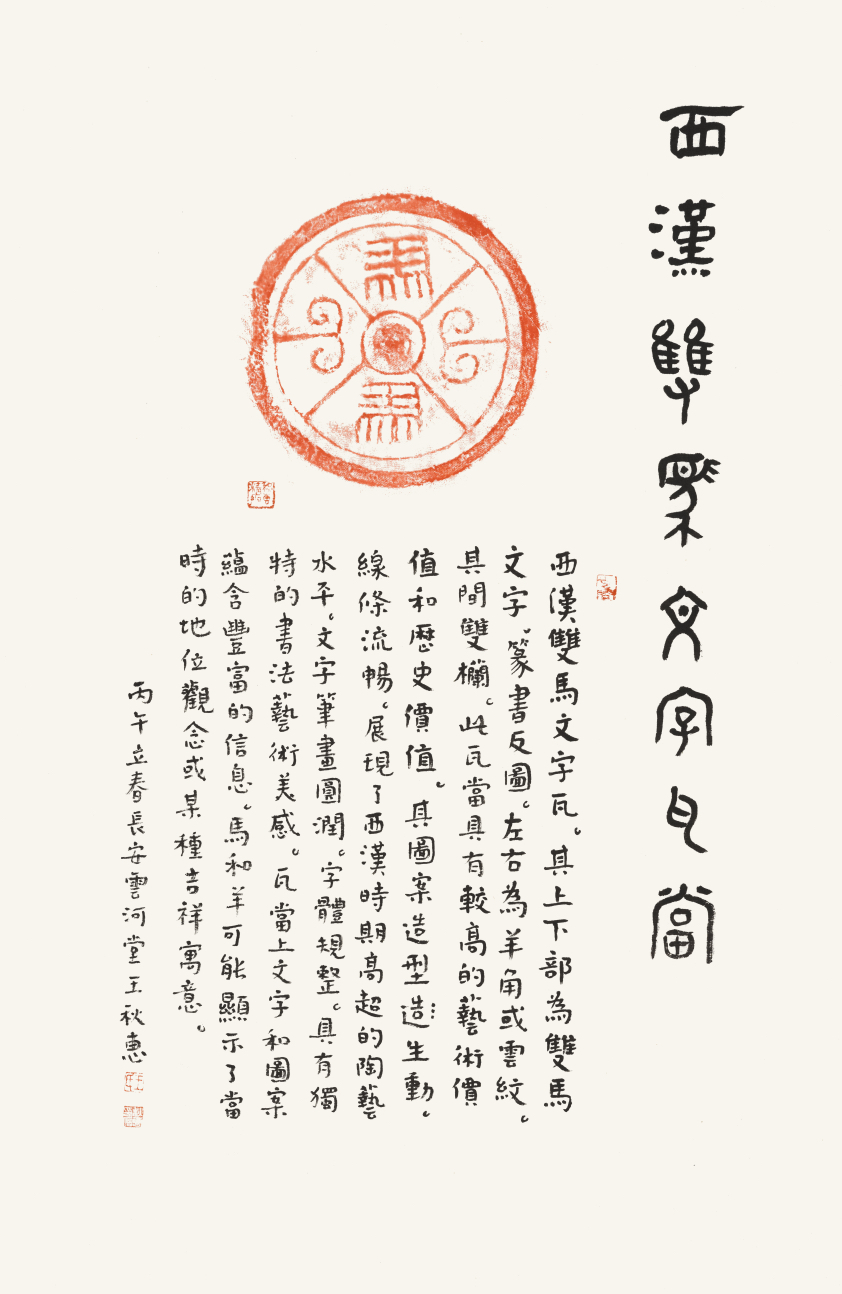 西漢雙馬文字瓦當
馬
馬
西漢雙馬文字瓦。其上下部為雙馬
文字。篆書反圖。左右為羊角或雲紋。
其間雙欄。此瓦當具有較高的藝術價
值和歷史價值。其圖案造型造生動。
線條流暢。展現了西漢時期高超的陶藝
水平。文字筆畫圓潤。字體規整。具有獨
特的書法藝術美感。瓦當上文字和圖案
蘊含豐富的信息。馬和羊可能顯示了當
時的地位觀念或某種吉祥寓意。
丙午立春長安雲河堂王秋惠